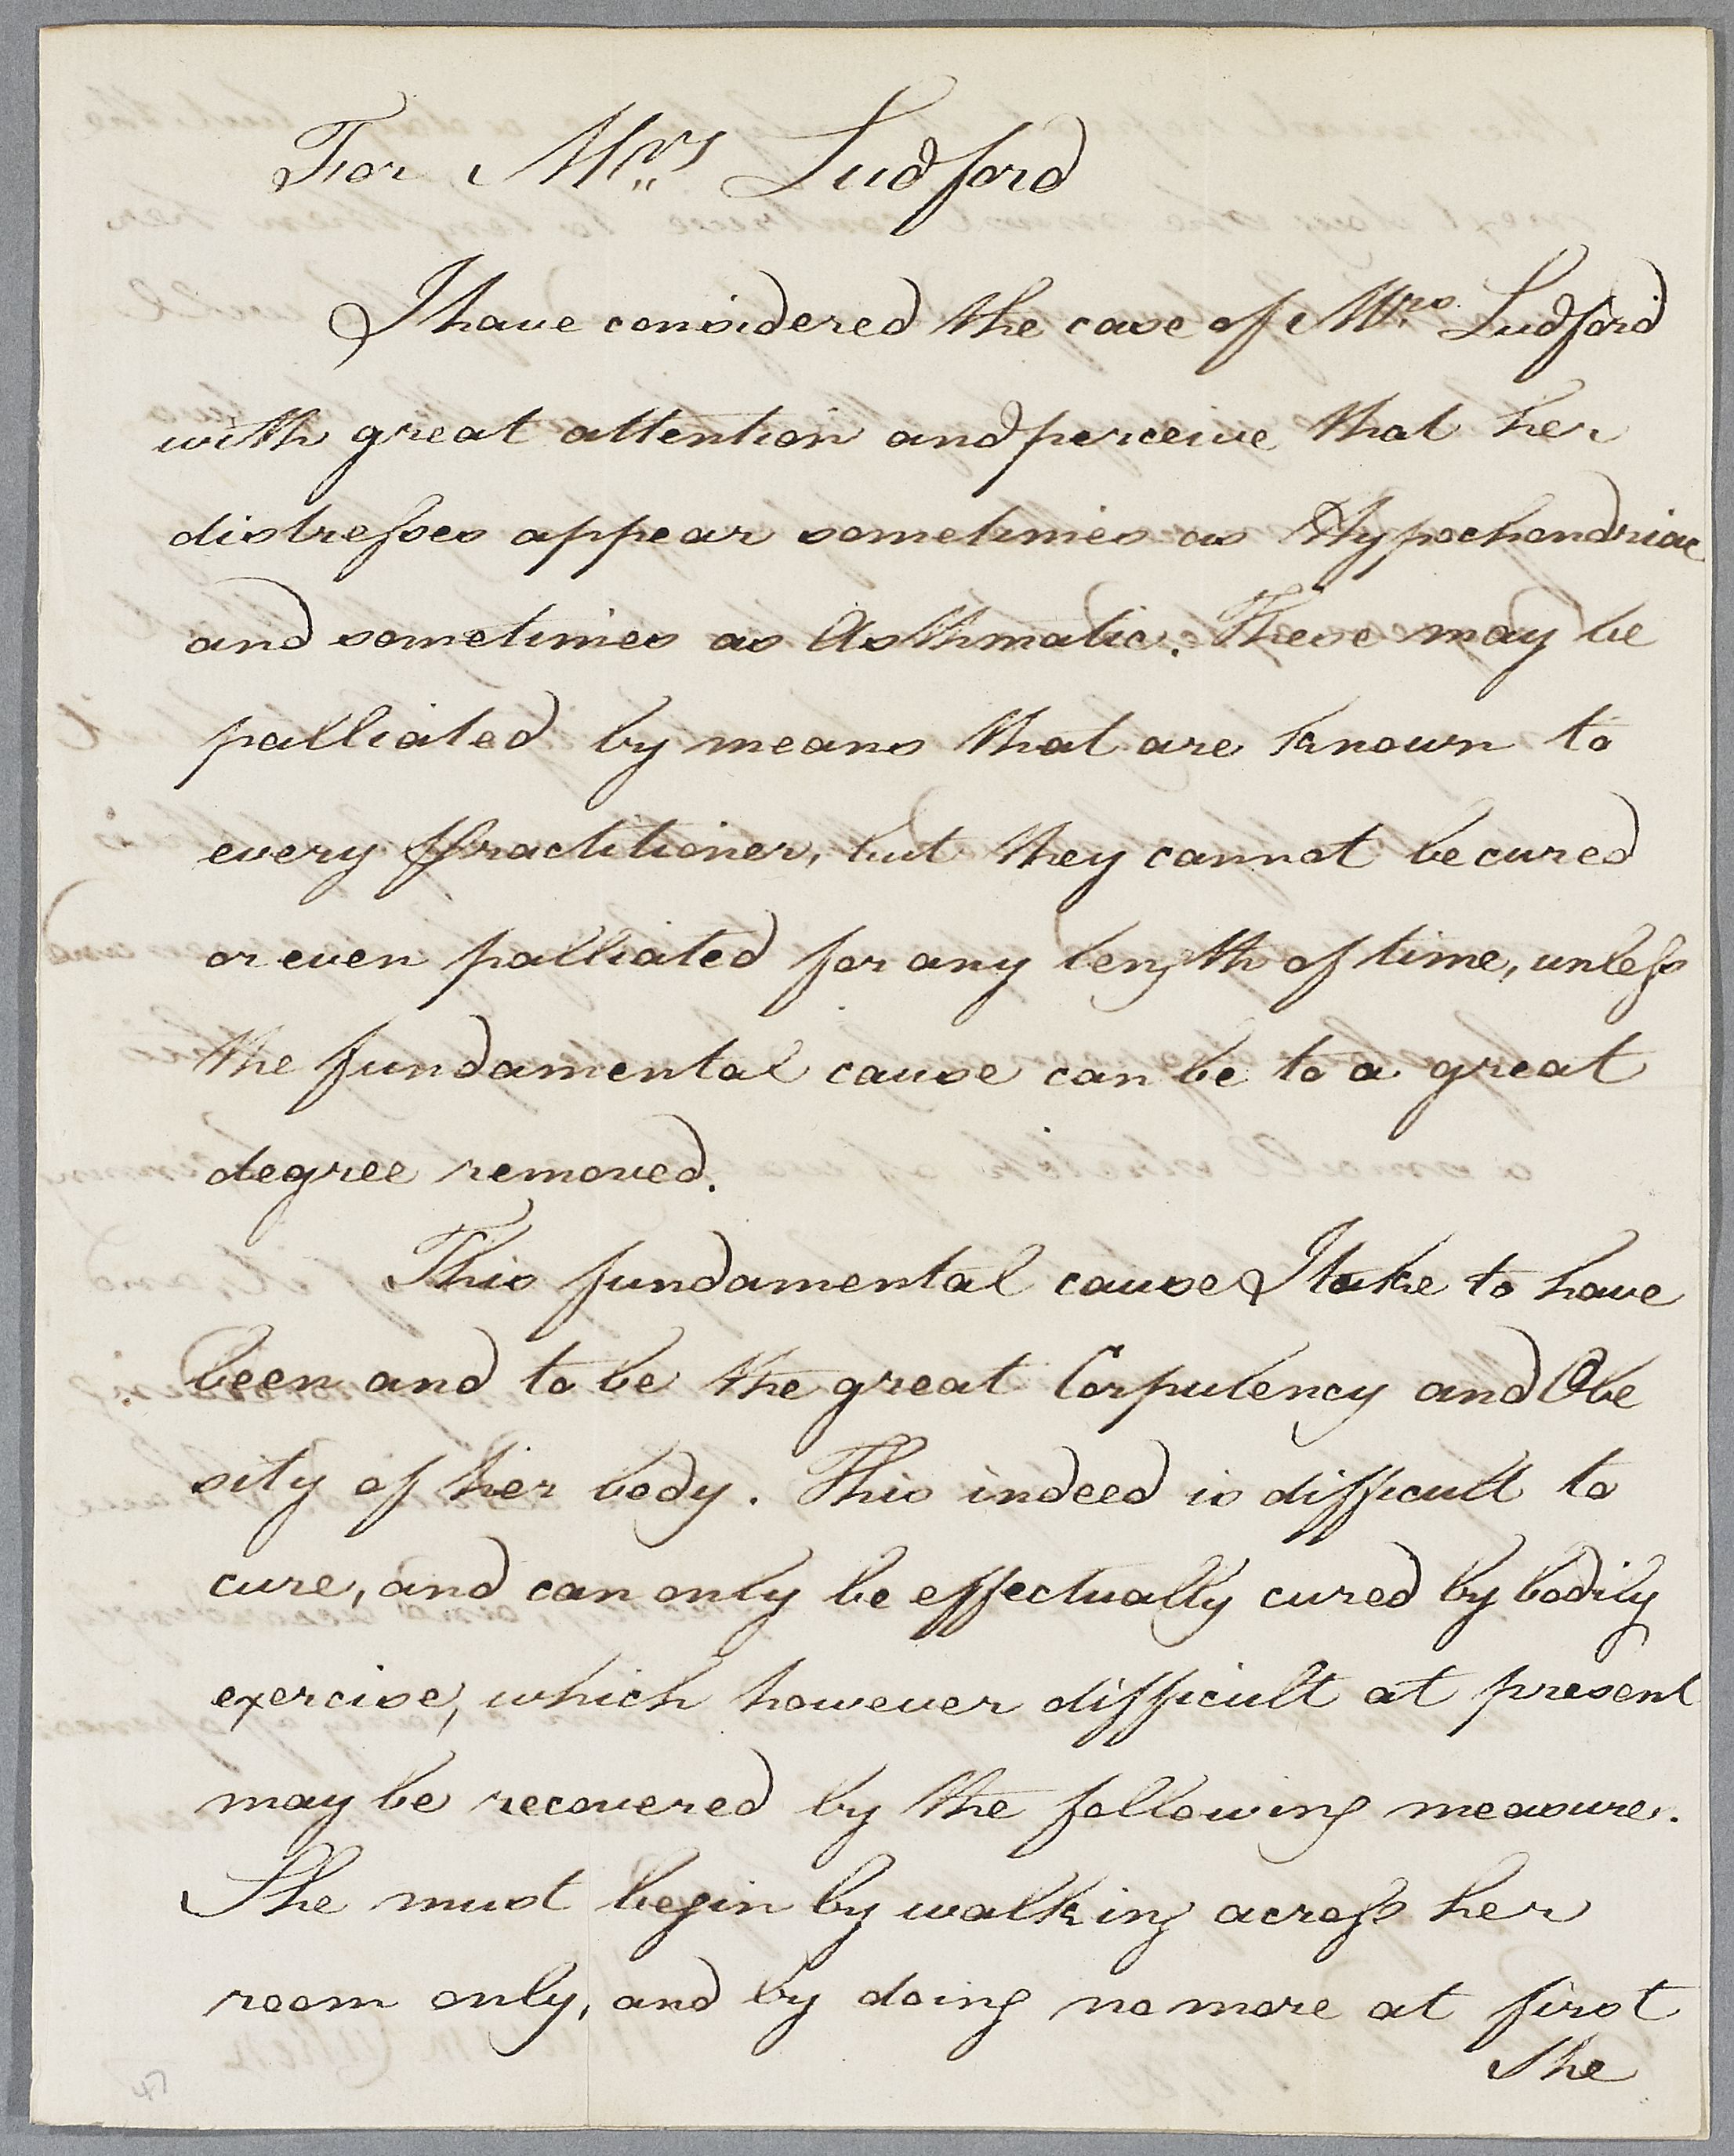 For Mrs Ludford
I have considered the case of Mrs Ludford
with great attention and perceive that her
distresses appear sometimes as Hypochondriac
and sometimes as Asthmatic. These may be
palliated by means that are known to
every Practitioner, but they cannot be cured
or even palliated for any length of time, unless
the fundamental cause can be to a great
degree removed.
This fundamental cause I take to have
been and to be the great Corpulency and Obe
sity of her body. This indeed is difficult to
cure, and can only be effectually cured by bodily
exercise, which however difficult at present
may be recovered by the following measure.
She must begin by walking across her
room only, and by doing no more at first
She